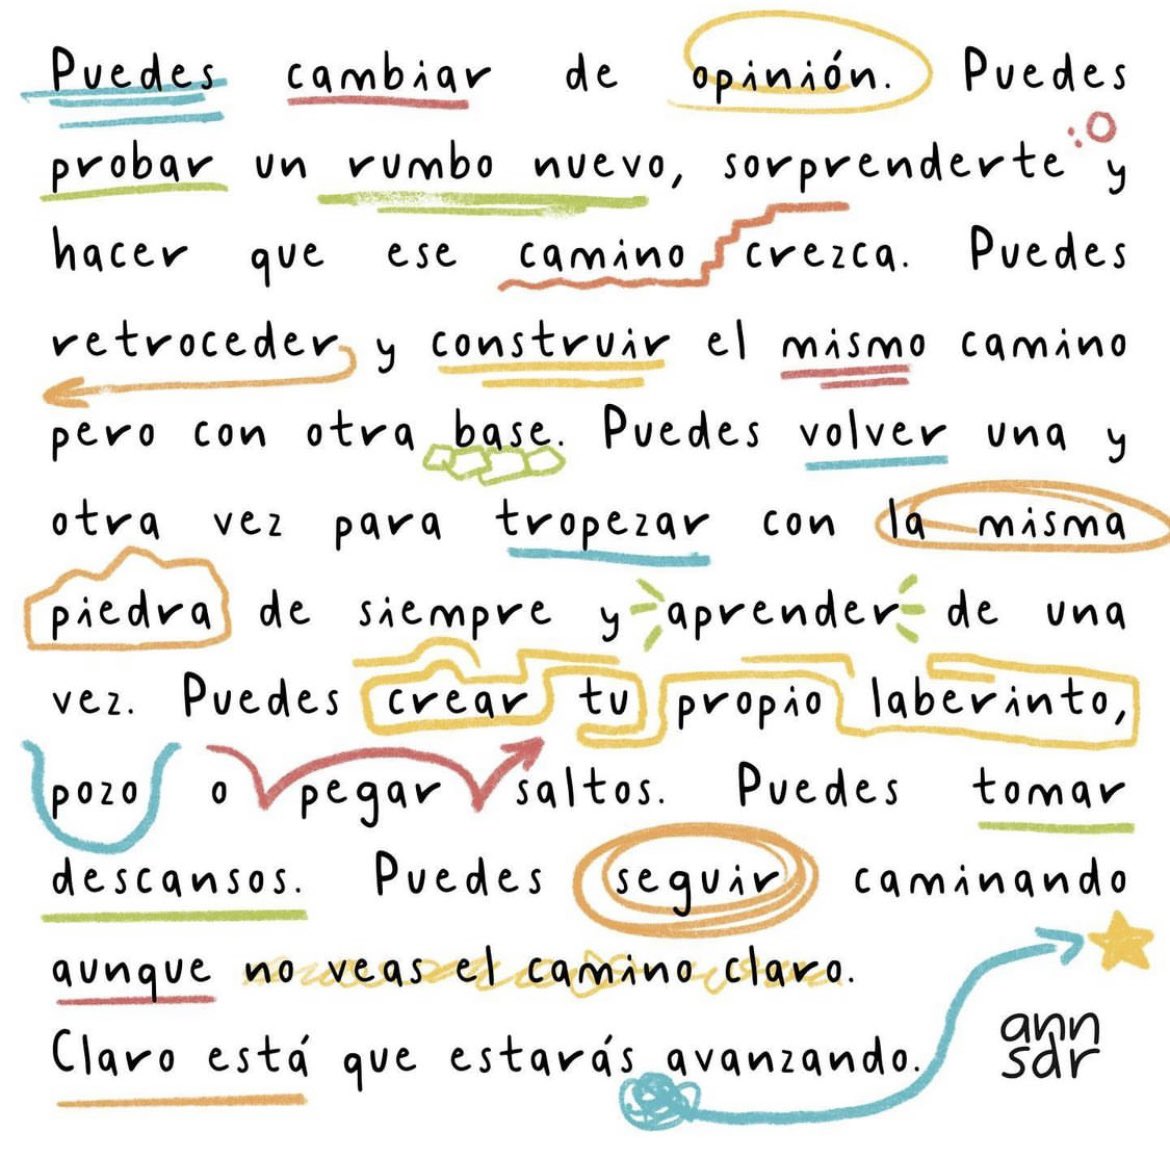 Puedes cambiar de opinión. Puedes
probar un rumbo nuevo, sorprenderte y
hacer que ese camino crezca. Puedes
retroceder y construir el mismo camino
pero con otra base. Puedes volver una y
otra vez para tropezar con la misma
piedra de siempre y aprender de una
vez. Puedes crear tu propio laberinto,
pozo o pegar saltos. Puedes tomar
descansos. Puedes seguir caminando
aunque no veas el camino claro.
Claro está que estarás avanzando.
ann
sdr